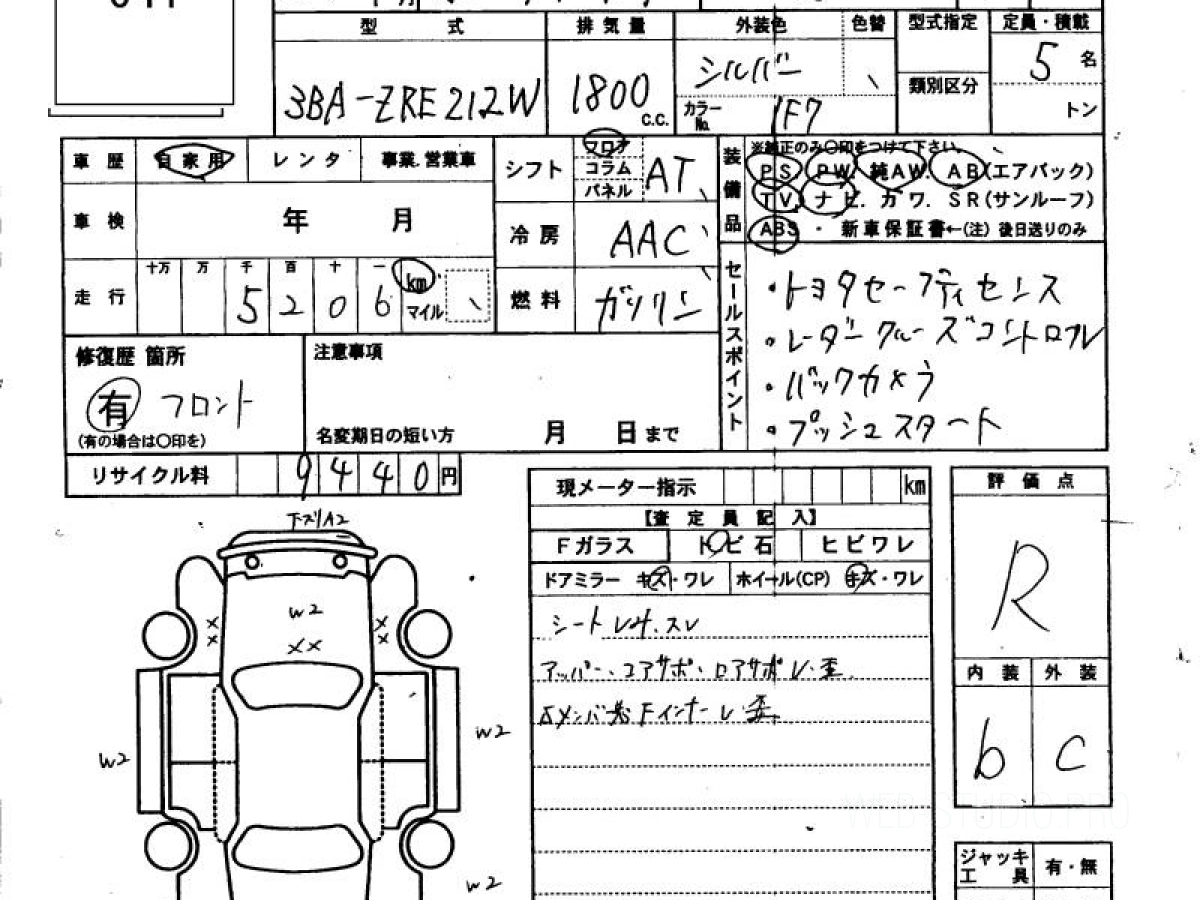 型 式 排 気 量 外装色 色替 型式指定 定員・積載
3BA-ZRE212W 1800 c.c. シルバー 5 名
カラーNo. 1F7 類別区分 トン
車 歴 自家用 レ ン タ 事業.営業車 シフト フロア コラム パネル AT
装備品 ※純正のみ○印をつけて下さい。
PS PW 純AW. AB(エアバック)
TV. ナビ. カワ. SR(サンルーフ)
ABS ・ 新車保証書←(注) 後日送りのみ
車 検 年 月 冷 房 AAC
走 行 十万 万 千 百 十 一 km マイル
5 2 0 6
燃 料 ガソリン
セールスポイント
・トヨタセーフティセンス
・レーダークルーズコントロール
・バックカメラ
・プッシュスタート
修復歴 箇所
有 フロント
(有の場合は○印を)
注意事項
名変期日の短い方 月 日まで
リサイクル料 9 4 4 0 円
現メーター指示 km
【査 定 員 記 入】
Fガラス トビ石 ヒビワレ
ドアミラー キズ・ワレ ホイール(CP) キズ・ワレ
アッパー・コアサポ・ロアサポ
評 価 点
R
内 装 外 装
b c
下ズリA2
W2
×× ×× ××
W2
W2
W2
ジャッキ 有・無
工 具
WEB STUDIO.PRO